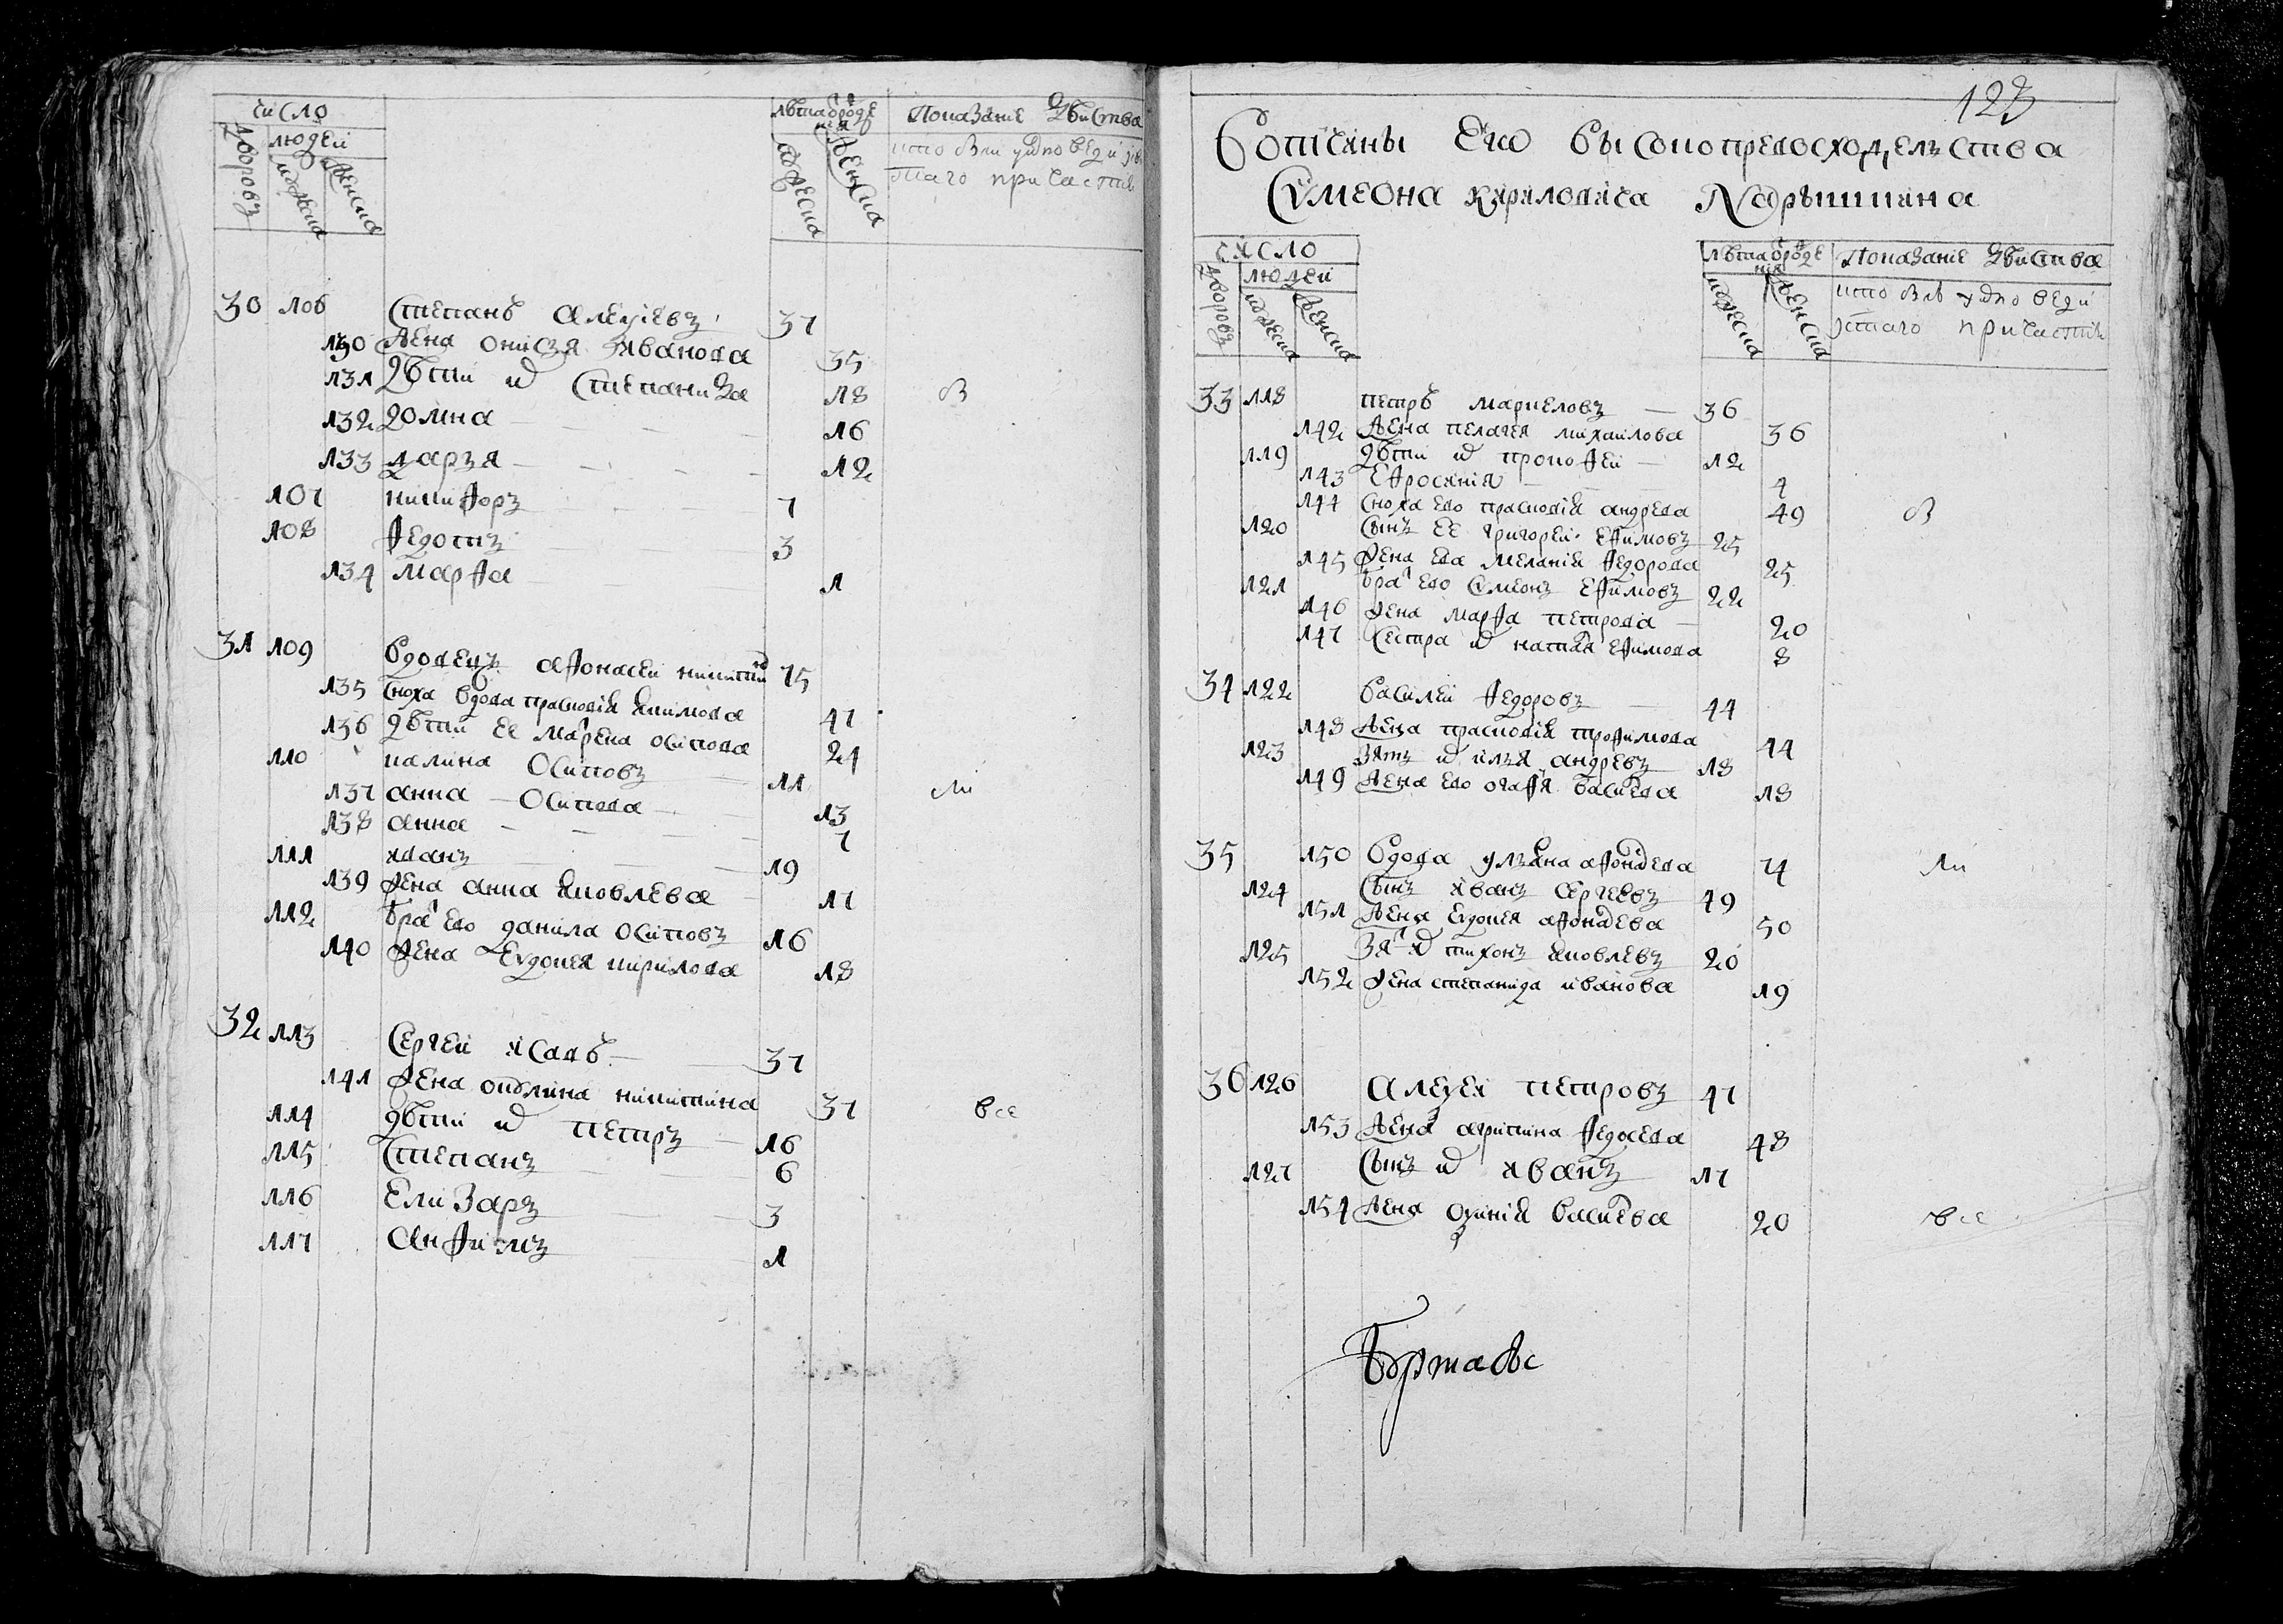 число
людей
дворовъ
мужеска
женска
лѣта отрожде
нія
мужеска
женска
показаніе дѣиства
кто былъ у исповеди и свя
таго причастія
30 106 Степанъ алеѯіевъ 37
130 Жена онисья Іванова 35
131 дѣти их Степанида 18
132 домна 16
133 дарья 12
107 никифоръ 7
108 Федотъ 3
134 марфа 1
31 109 Вдовецъ афонасеи никитинъ 75
135 сноха вдова прасковія якимова 47
136 дѣти ее марфена осипова 24
110 калина Осиповъ 11
137 анна Осипова 13
138 анна 7
111 иванъ 19
139 Жена анна яковлева 17
112 братъ ево данила осиповъ 16
140 Жена Евдокея кирилова 18
32 113 Сергеи исаевъ 37
141 Жена акулина никитина 37 все
114 дѣти их петръ 16
115 Степанъ 6
116 Елизаръ 3
117 Анфимъ 1
123
Вотчины Его высокопревосходителства
Сѵмеона кириловича Нарышкина
число
людей
дворовъ
мужеска
женска
лѣта отрожде
нія
мужеска
женска
показаніе дѣиства
кто былъ у исповеди
и святаго причастія
33 118 петръ маркеловъ 36
142 Жена пелагея михаилова 36
119 дѣти их прокофеи 12
143 Ефросинія 4
144 сноха ево прасковія андреева 49
120 Сынъ ее григореи Ефимовъ 25
145 Жена ева меланія федорова 25
121 братъ ево Сѵмеонъ Ефимовъ 22
146 Жена марфа петрова 20
147 Сестра их настасья Ефимова 8
34 122 Василеи Федоровъ 44
148 Жена прасковія трофимова 44
123 Зять их илья андревъ 18
149 Жена ево огафія васильева 18
35 150 Вдова ульяна афонасева 74
124 Сынъ иванъ Сергѣевъ 49
151 Жена Евдокея афонасева 50
125 Зять их тихонъ яковлевъ 20
152 Жена степанида иванова 19
36 126 Алеѯеи петровъ 47
153 Жена агрипина Федосева 48
127 Сынъ их иванъ 17
154 Жена ѯинія васильева 20 все